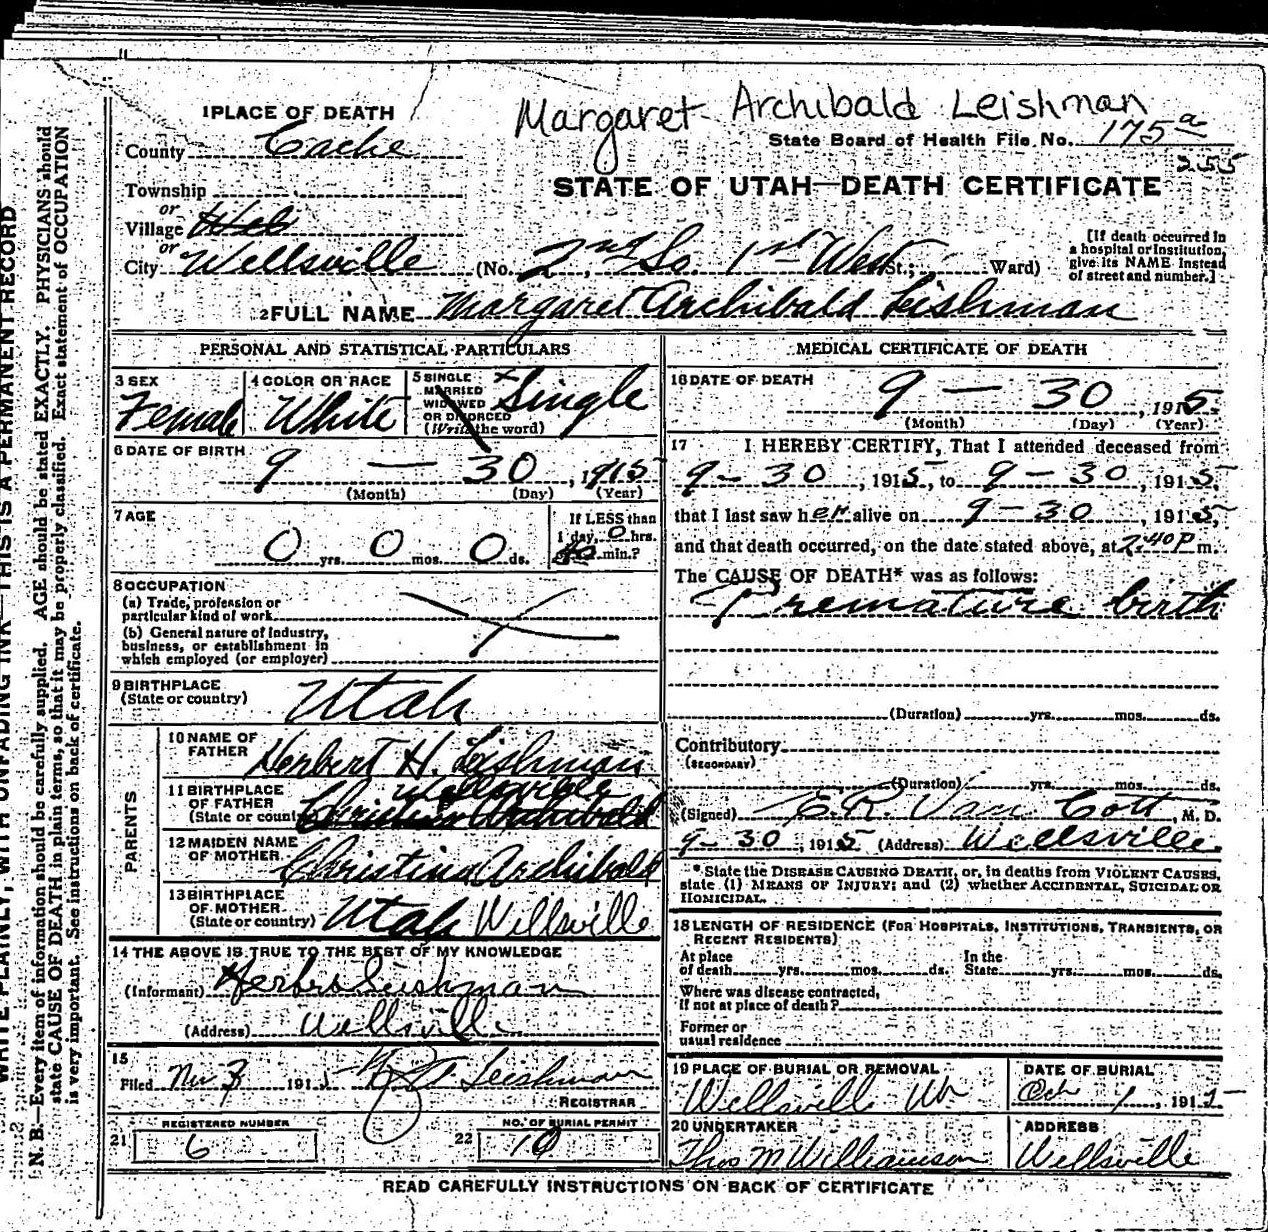 Margaret Archibald Leishman
1 PLACE OF DEATH
State Board of Health File No. 175 a
255
County Cache
STATE OF UTAH—DEATH CERTIFICATE
Township
or
Village Wel
or
City Wellsville (No. 2nd So. 1st West St.; Ward)
[If death occurred in
a hospital or institution,
give its NAME instead
of street and number.]
2 FULL NAME Margaret Archibald Leishman
PERSONAL AND STATISTICAL PARTICULARS
3 SEX
Female
4 COLOR OR RACE
White
5 SINGLE
MARRIED
WIDOWED
OR DIVORCED
(Write the word)
Single
6 DATE OF BIRTH
9 — 30, 1915
(Month) (Day) (Year)
7 AGE
0 yrs. 0 mos. 0 ds.
If LESS than
1 day, 0 hrs.
or 40 min.?
8 OCCUPATION
(a) Trade, profession or
particular kind of work
(b) General nature of Industry,
business, or establishment in
which employed (or employer)
9 BIRTHPLACE
(State or country)
Utah
PARENTS
10 NAME OF
FATHER
Herbert H. Leishman
11 BIRTHPLACE
OF FATHER
(State or country)
Wellsville
Christina Archibald
12 MAIDEN NAME
OF MOTHER
Christina Archibald
13 BIRTHPLACE
OF MOTHER
(State or country)
Utah Wellsville
14 THE ABOVE IS TRUE TO THE BEST OF MY KNOWLEDGE
(Informant) Leishman
(Address) Wellsville
15
Filed 3 191 Leishman
REGISTRAR
REGISTERED NUMBER
21 6
NO. OF BURIAL PERMIT
22 10
MEDICAL CERTIFICATE OF DEATH
16 DATE OF DEATH
9 — 30, 1915
(Month) (Day) (Year)
17 I HEREBY CERTIFY, That I attended deceased from
9 - 30, 1915, to 9 - 30, 1915,
that I last saw her alive on 9 - 30, 1915,
and that death occurred, on the date stated above, at 2:40 P m.
The CAUSE OF DEATH* was as follows:
Premature birth
(Duration) yrs. mos. ds.
Contributory
(SECONDARY)
(Duration) yrs. mos. ds.
(Signed) E. R. Van Cott, M. D.
9 - 30, 1915 (Address) Wellsville
*State the DISEASE CAUSING DEATH, or, in deaths from VIOLENT CAUSES,
state (1) MEANS OF INJURY; and (2) whether ACCIDENTAL, SUICIDAL OR
HOMICIDAL.
18 LENGTH OF RESIDENCE (FOR HOSPITALS, INSTITUTIONS, TRANSIENTS, OR
RECENT RESIDENTS)
At place
of death yrs. mos. ds.
In the
State yrs. mos. ds.
Where was disease contracted,
if not at place of death?
Former or
usual residence
19 PLACE OF BURIAL OR REMOVAL
Wellsville Ut
DATE OF BURIAL
Oct 1, 191
20 UNDERTAKER
Thos M Williamson
ADDRESS
Wellsville
READ CAREFULLY INSTRUCTIONS ON BACK OF CERTIFICATE
WRITE PLAINLY, WITH UNFADING INK—THIS IS A PERMANENT RECORD
N. B.—Every item of information should be carefully supplied. AGE should be stated EXACTLY. PHYSICIANS should
state CAUSE OF DEATH in plain terms, so that it may be properly classified. Exact statement of OCCUPATION
is very important. See instructions on back of certificate.